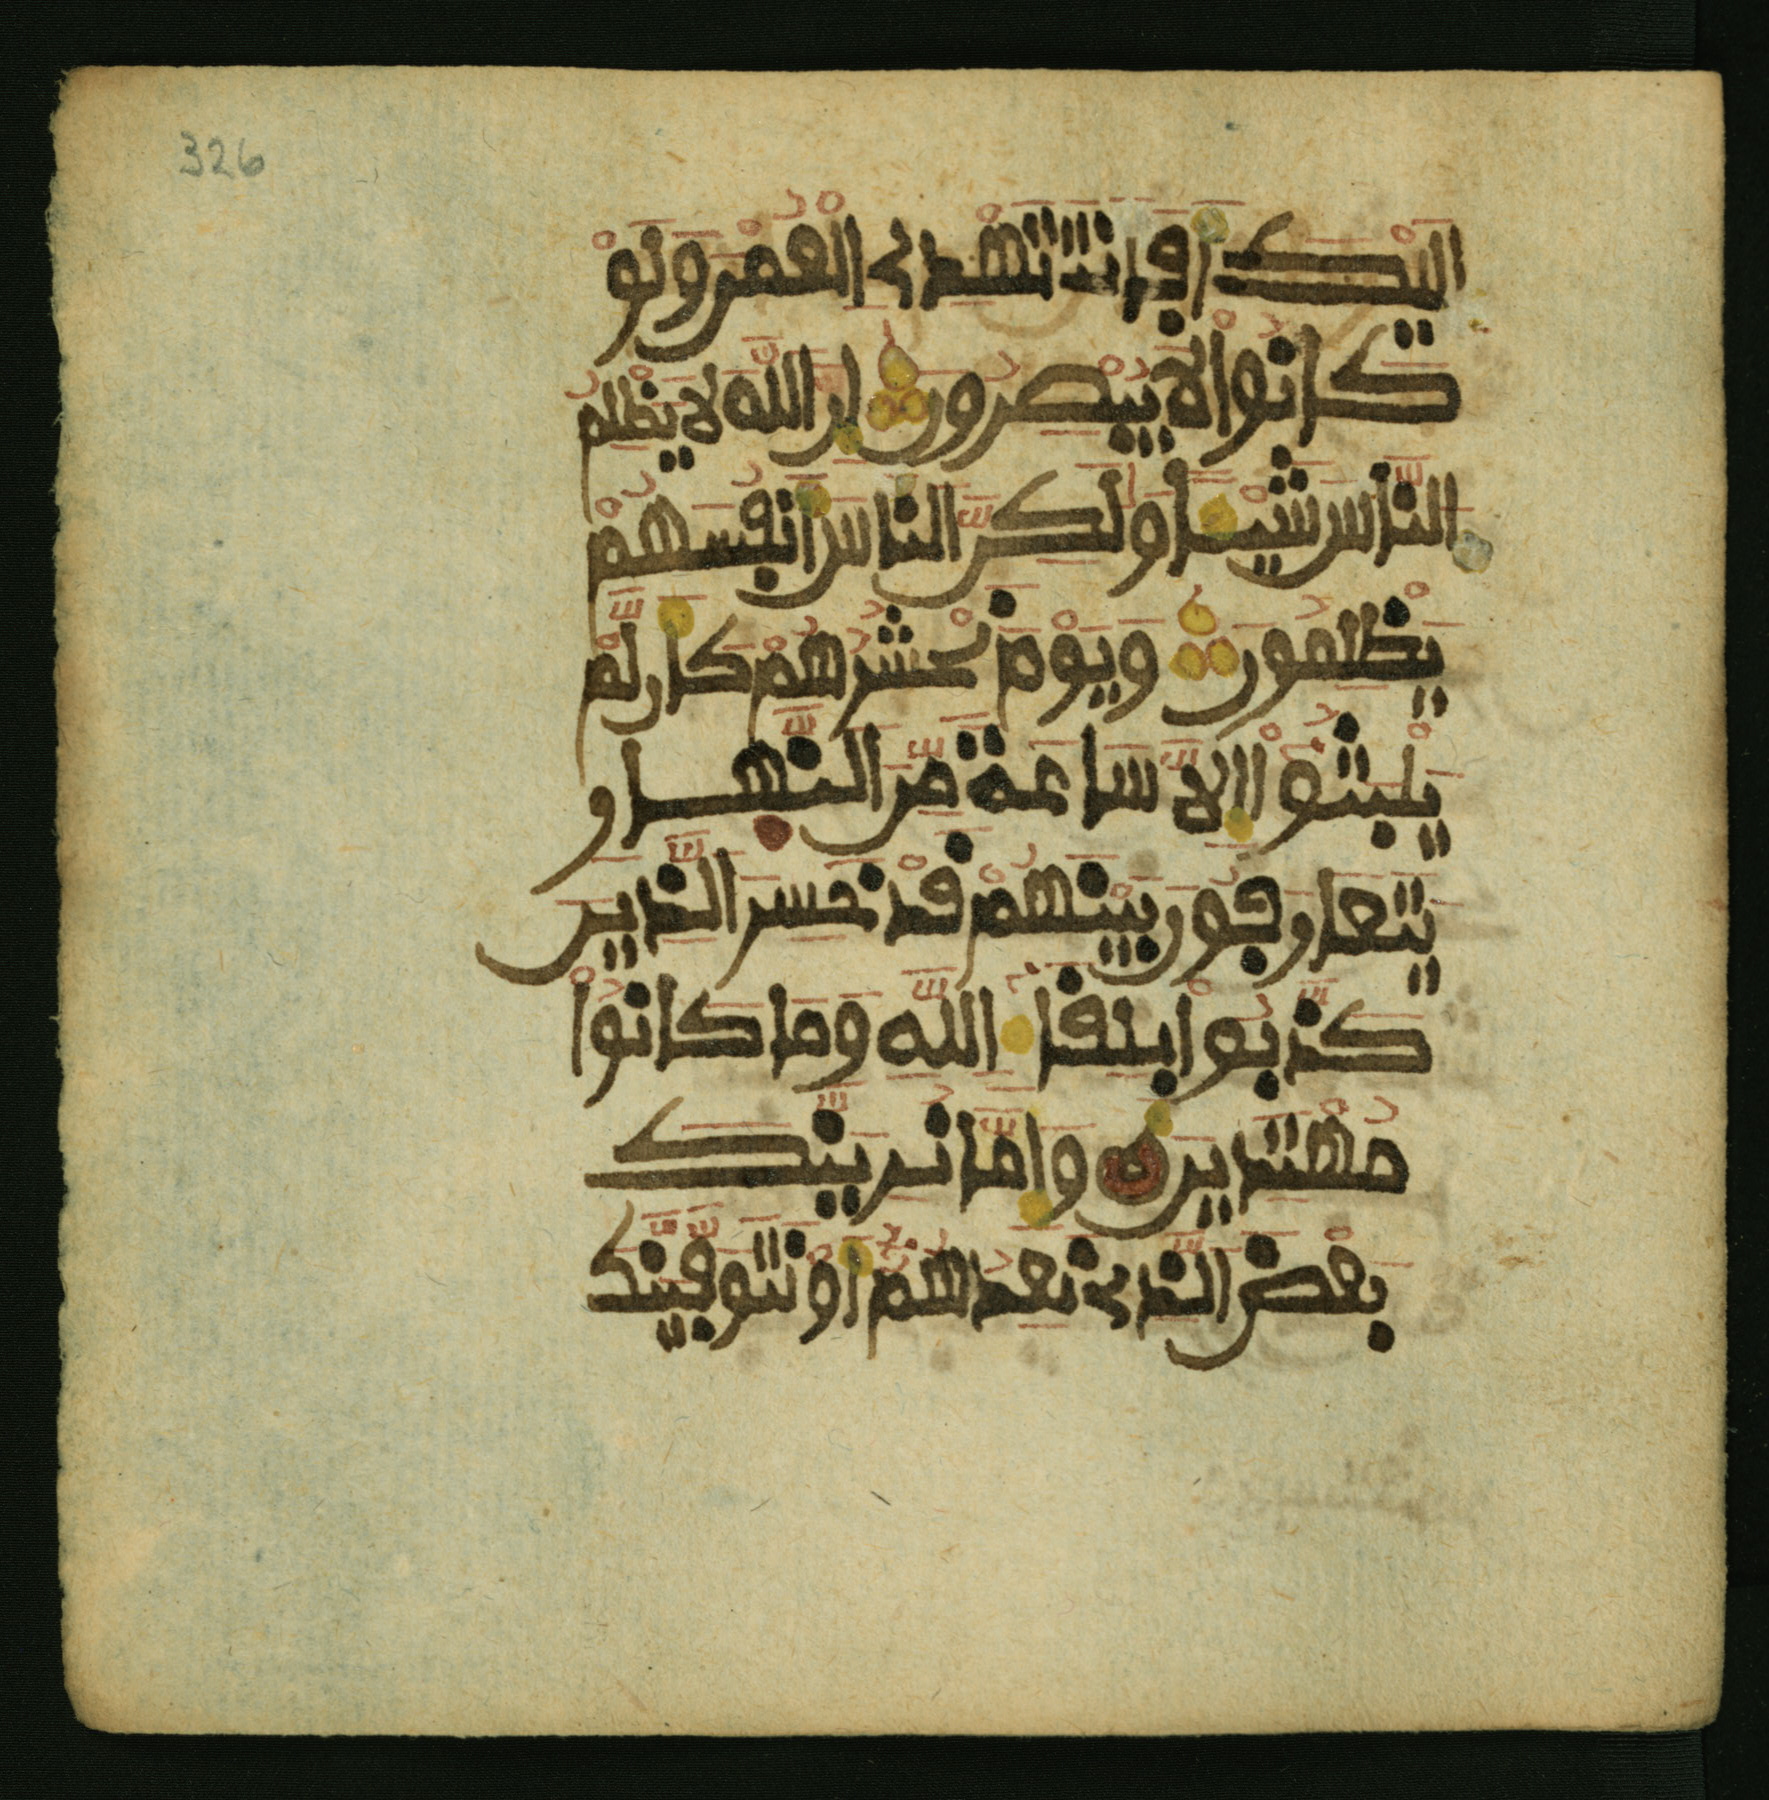 326
اليك افانت تهدے العمے ولو
كانوا لا يبصرون ان الله لا يظلم
الناس شيـا ولكن الناس انفسهم
يظلمون ويوم نحشرهم كان لم
يلبثوا الا ساعة من النهار
يتعارفون بينهم قد خسر الذين
كذبوا بلقا الله وما كانوا
مهتدين واما نرينك
بعض الذے نعدهم او نتوفينك